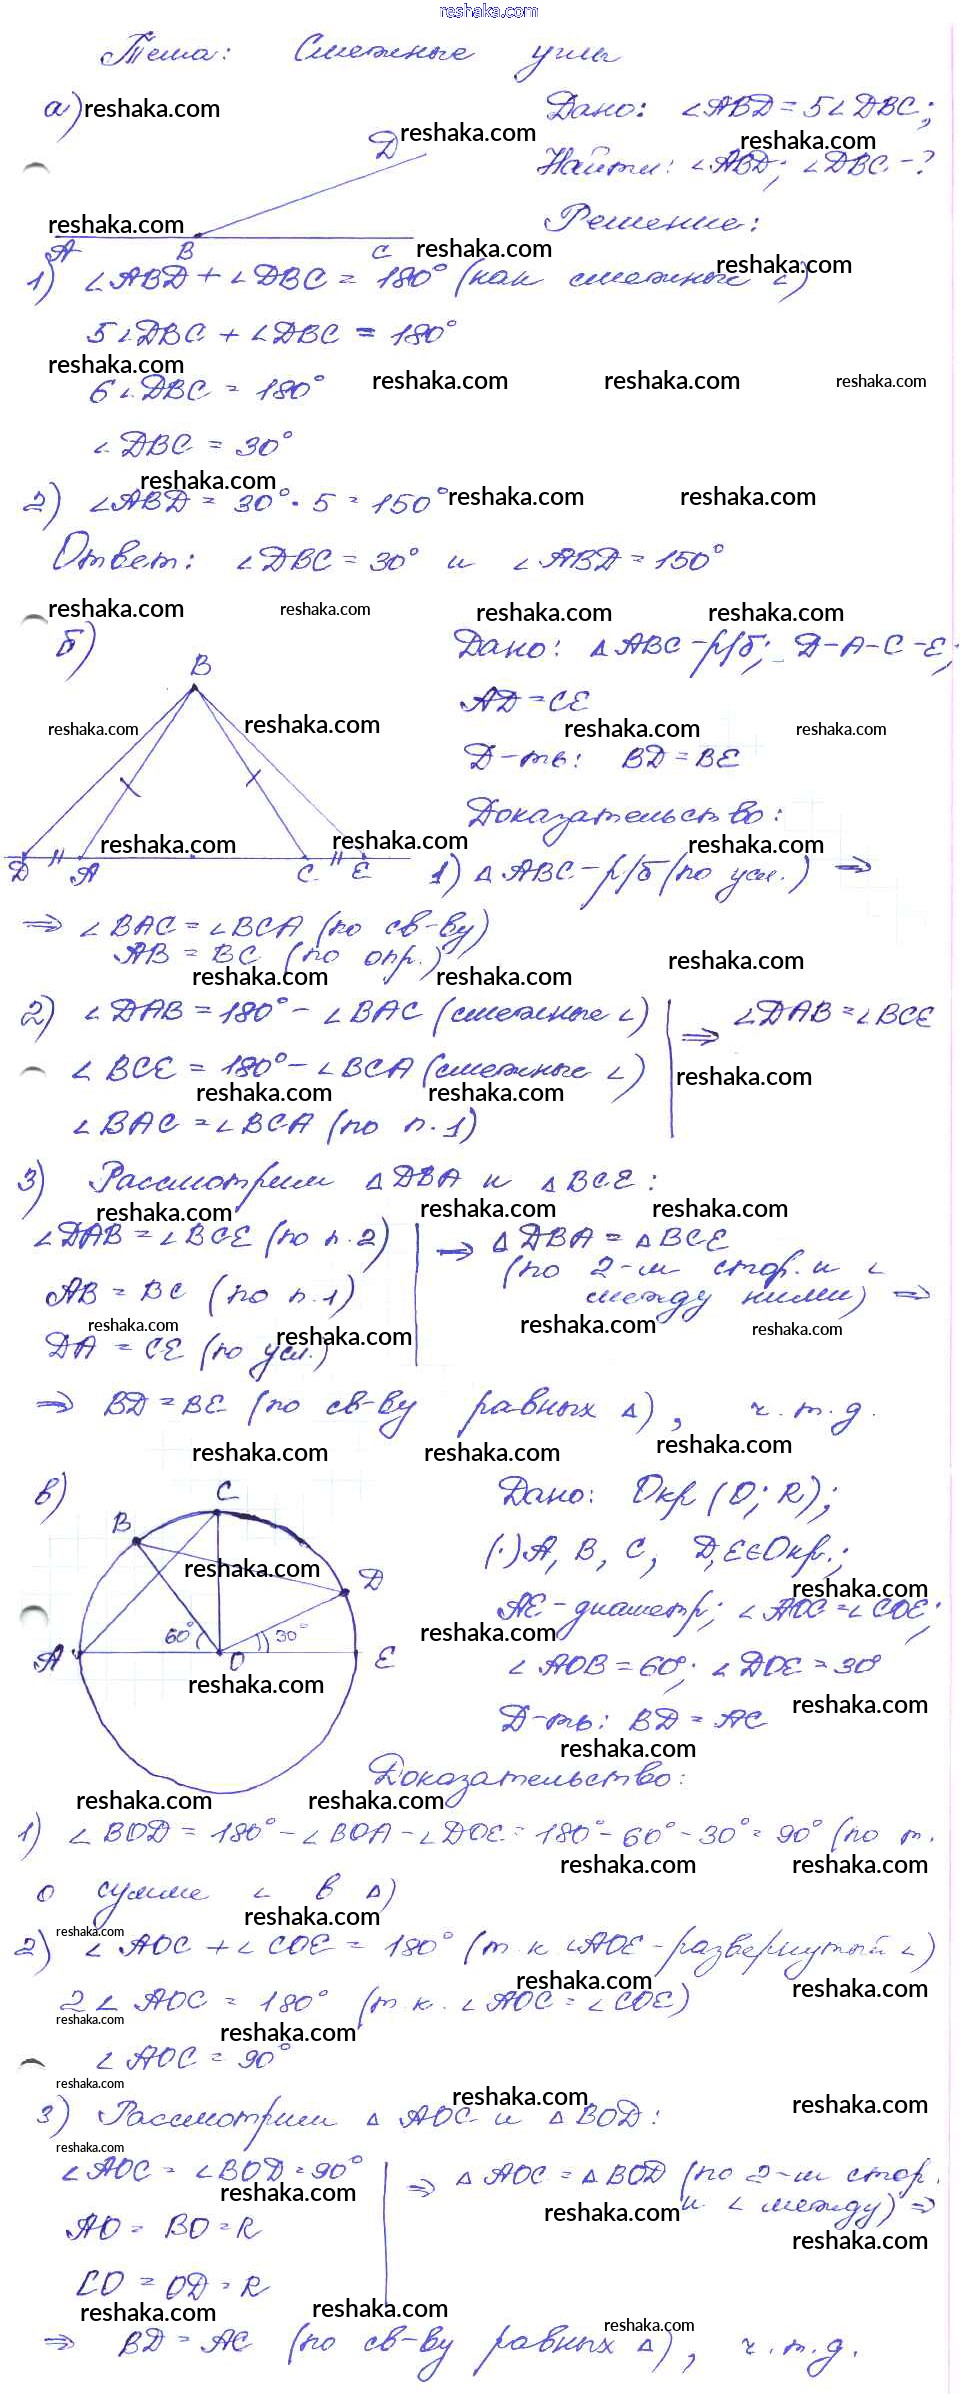 reshaka.com
Тема: Смежные углы
а) reshaka.com Дано: ∠ABD = 5∠DBC;
D reshaka.com reshaka.com
Найти: ∠ABD; ∠DBC - ?
reshaka.com Решение:
A B C reshaka.com reshaka.com
1) ∠ABD + ∠DBC = 180° (как смежные ∠)
5∠DBC + ∠DBC = 180°
reshaka.com reshaka.com reshaka.com reshaka.com
6∠DBC = 180°
∠DBC = 30°
reshaka.com reshaka.com reshaka.com
2) ∠ABD = 30° · 5 = 150°
Ответ: ∠DBC = 30° и ∠ABD = 150°
reshaka.com reshaka.com reshaka.com reshaka.com
б) Дано: △ABC - р/б; D-A-C-E;
B
AD = CE
reshaka.com reshaka.com reshaka.com reshaka.com
Д-ть: BD = BE
Доказательство:
reshaka.com reshaka.com reshaka.com
D A C E
1) △ABC - р/б (по усл.) ⇒
⇒ ∠BAC = ∠BCA (по св-ву)
AB = BC (по опр.)
reshaka.com reshaka.com reshaka.com
2) ∠DAB = 180° - ∠BAC (смежные ∠) ⇒ ∠DAB = ∠BCE
∠BCE = 180° - ∠BCA (смежные ∠) reshaka.com
reshaka.com reshaka.com
∠BAC = ∠BCA (по п.1)
3) Рассмотрим △DBA и △BCE:
reshaka.com reshaka.com reshaka.com
∠DAB = ∠BCE (по п.2) ⇒ △DBA = △BCE
(по 2-м стор. и ∠
AB = BC (по п.1) между ними) ⇒
reshaka.com reshaka.com reshaka.com reshaka.com
DA = CE (по усл.)
⇒ BD = BE (по св-ву равных △), ч.т.д.
reshaka.com reshaka.com reshaka.com
в) Дано: Окр (O; R);
C
B
(·) A, B, C, D, E ∈ Окр.;
reshaka.com D reshaka.com
AE - диаметр; ∠AOC = ∠COE;
60° 30° reshaka.com
A O E
∠AOB = 60°; ∠DOE = 30°
reshaka.com reshaka.com
Д-ть: BD = AC
reshaka.com
Доказательство:
reshaka.com reshaka.com
1) ∠BOD = 180° - ∠BOA - ∠DOE = 180° - 60° - 30° = 90° (по т.
reshaka.com reshaka.com
о сумме ∠ в △)
reshaka.com reshaka.com
2) ∠AOC + ∠COE = 180° (т.к ∠AOE - развернутый ∠)
reshaka.com reshaka.com
2∠AOC = 180° (т.к. ∠AOC = ∠COE)
reshaka.com reshaka.com
∠AOC = 90°
reshaka.com reshaka.com reshaka.com
3) Рассмотрим △AOC и △BOD:
reshaka.com
∠AOC = ∠BOD = 90° ⇒ △AOC = △BOD (по 2-м стор.
reshaka.com reshaka.com и ∠ между) ⇒
AO = BO = R reshaka.com
CO = OD = R
reshaka.com reshaka.com reshaka.com
⇒ BD = AC (по св-ву равных △), ч.т.д.